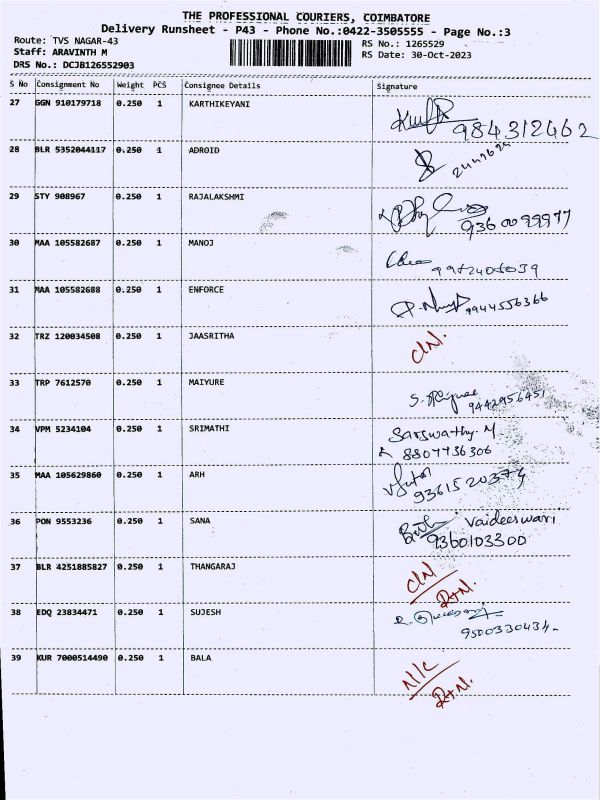 THE PROFESSIONAL COURIERS, COIMBATORE
Delivery Runsheet - P43 - Phone No.:0422-3505555 - Page No.:3
Route: TVS NAGAR-43 RS No.: 1265529
Staff: ARAVINTH M RS Date: 30-Oct-2023
DRS No.: DCJB126552903
S No Consignment No Weight PCS Consignee Details Signature
27 GGN 910179718 0.250 1 KARTHIKEYANI
984312462
28 BLR 5352044117 0.250 1 ADROID
29 STY 908967 0.250 1 RAJALAKSHMI
9360099977
30 MAA 105582687 0.250 1 MANOJ
31 MAA 105582688 0.250 1 ENFORCE
9944556366
32 TRZ 120034508 0.250 1 JAASRITHA
33 TRP 7612570 0.250 1 MAIYURE
9442956451
34 VPM 5234104 0.250 1 SRIMATHI Sarswathy. M
8807756306
35 MAA 105629860 0.250 1 ARH
9361520374
36 PON 9553236 0.250 1 SANA Vaideeswari
9360103300
37 BLR 4251885827 0.250 1 THANGARAJ
38 EDQ 23834471 0.250 1 SUJESH
9500330434
39 KUR 7000514490 0.250 1 BALA